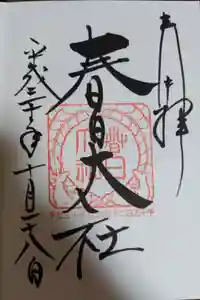 奉拝
春日大社
平成三十年十月二八日